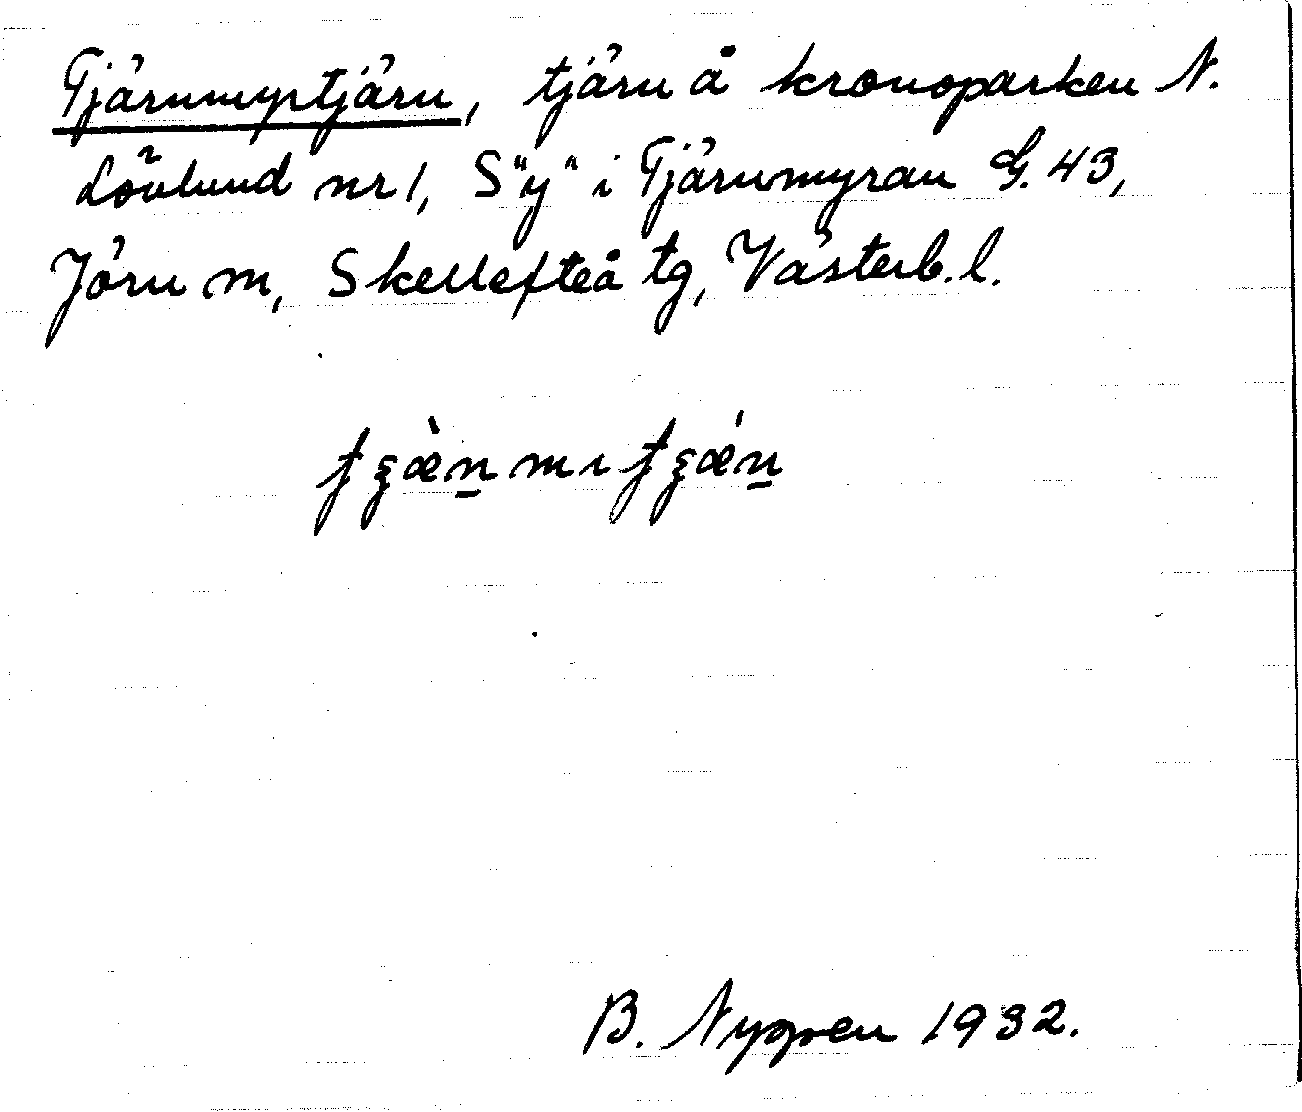 Tjärnmyrtjärn, tjärn å kronoparken N.
Lövlund nr 1, S "y" i Tjärnmyran G. 43,
Jörn m, Skellefteå tg, Västerb. l.
B. Nygren 1932.